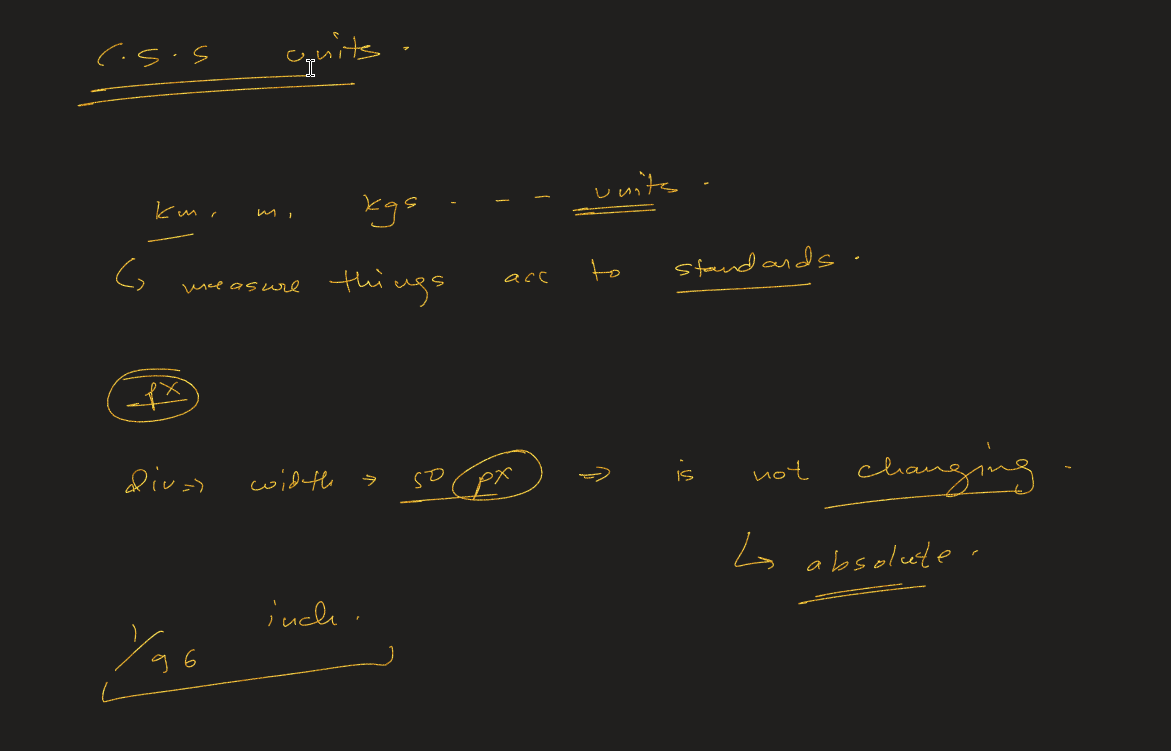 C.S.S units.
km, m, kgs . - - units.
↳ measure things acc to standards.
px
div => width → 50 px => is not changing.
↳ absolute.
1/96 inch.